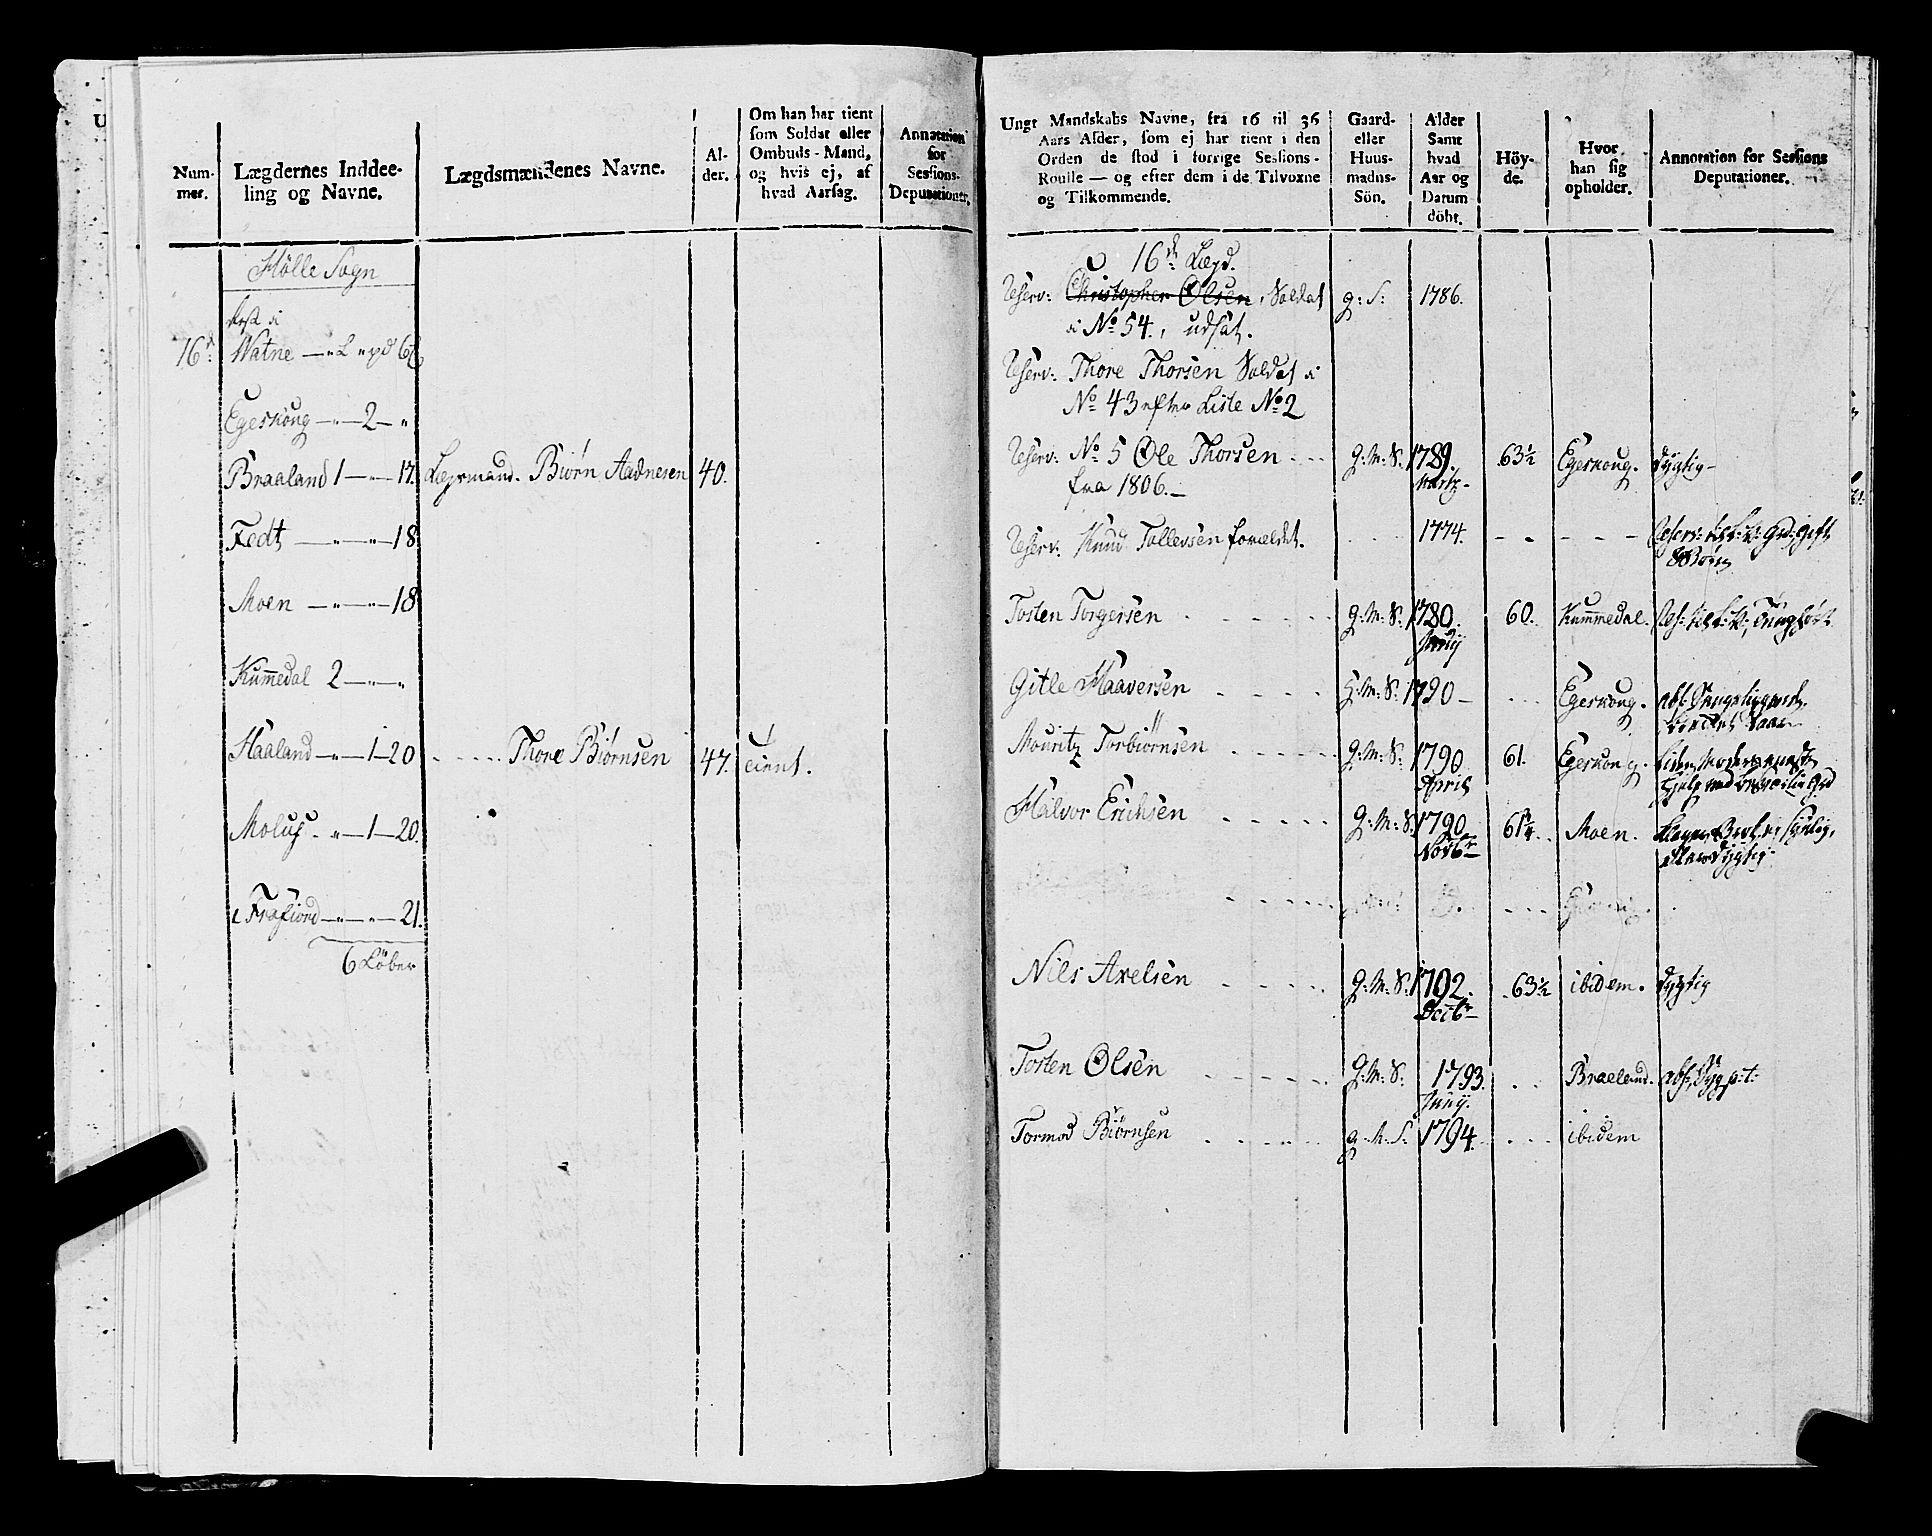 Num-
mer.
Lægdernes Inddee-
ling og Navne.
Lægdsmændenes Navne.
Al-
der.
Om han har tient
som Soldat eller
Ombuds-Mand,
og hvis ej, af
hvad Aarsag.
Annotation
for
Sessions-
Deputationer.
Hölle Sogn
16de
Watne
Egeskoug — " — 2 — "
Braaland 1 — " — 17. Lægsmand. Biörn Aadnesen 40.
Fedt — " — " — 18
Moen — " — " — 18
Kummedal 2 — " — "
Haaland — " — 1 — 20 Thore Biörnsen 47. tient.
Molug — " — 1 — 20.
Frafiord — " — " — 21.
6 Löber
Ungt Mandskabs Navne, fra 16 til 36
Aars Alder, som ej har tient i den
Orden de stod i forrige Sessions-
Roulle — og efter dem i de Tilvoxne
og Tilkommende.
Gaard-
eller
Huus-
mands-
Sön.
Alder
Samt
hvad
Aar og
Datum
döbt.
Höy-
de.
Hvor
han sig
opholder.
Annotation for Sessions
Deputationer.
16de Lægd.
Reserv: Christopher Olsen, Soldat g: S: 1786.
i No 54, udsat.
Reserv: Thore Thorsen Soldat i
No 43 efter Liste No 2
Reserv: No 5 Ole Thorsen G: M: S. 1789. 63½ Egeskoug. dygtig
fra 1806. Martz
Reserv: Knud Tollevsen forældet. 1774.
Tosten Torgersen G: M: S: 1780. 60. Kummedal.
Gitle Haaversen H: M: S: 1790 Egeskoug.
Mouritz Torbiörnsen G: M: S: 1790 61. Egeskoug.
April
Halvor Erichsen G: M: S: 1790 61¼ Moen.
Novbr
Nils Axelsen G: M: S: 1792. 63½ ibidem. dygtig
Decbr
Tosten Olsen G: M: S. 1793. Braeland.
Juny.
Tormod Biörnsen g. M. S. 1794. ibidem